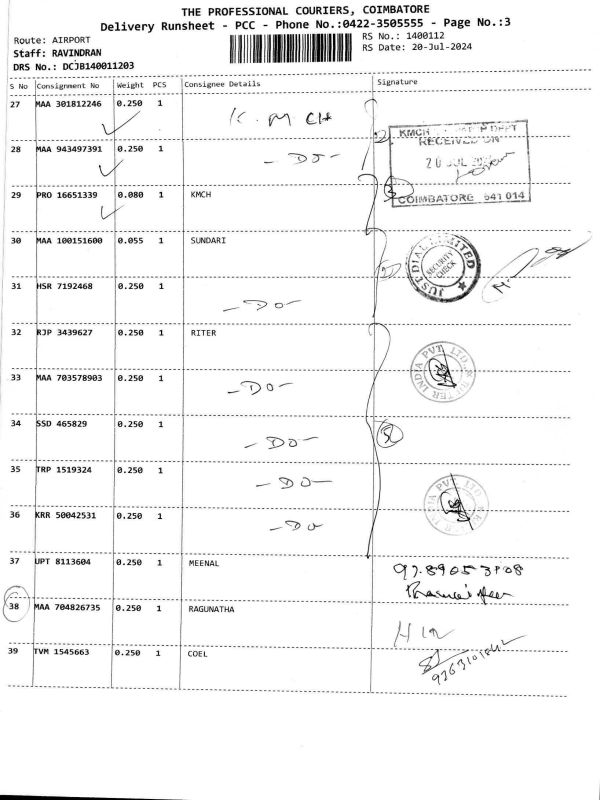 THE PROFESSIONAL COURIERS, COIMBATORE
Delivery Runsheet - PCC - Phone No.:0422-3505555 - Page No.:3
Route: AIRPORT
RS No.: 1400112
Staff: RAVINDRAN
RS Date: 20-Jul-2024
DRS No.: DCJB140011203
S No Consignment No Weight PCS Consignee Details Signature
27 MAA 301812246 0.250 1 K.M CH
28 MAA 943497391 0.250 1 - DO -
KMCH
RECEIVED ON
20 JUL
COIMBATORE 641 014
29 PRO 16651339 0.080 1 KMCH
30 MAA 100151600 0.055 1 SUNDARI
JUST DIAL LIMITED
SECURITY
CHECK
31 HSR 7192468 0.250 1 - DO -
32 RJP 3439627 0.250 1 RITER
33 MAA 703578903 0.250 1 - DO -
34 SSD 465829 0.250 1 - DO - 5
35 TRP 1519324 0.250 1 - DO -
36 KRR 50042531 0.250 1 - DO
37 UPT 8113604 0.250 1 MEENAL
38 MAA 704826735 0.250 1 RAGUNATHA
39 TVM 1545663 0.250 1 COEL